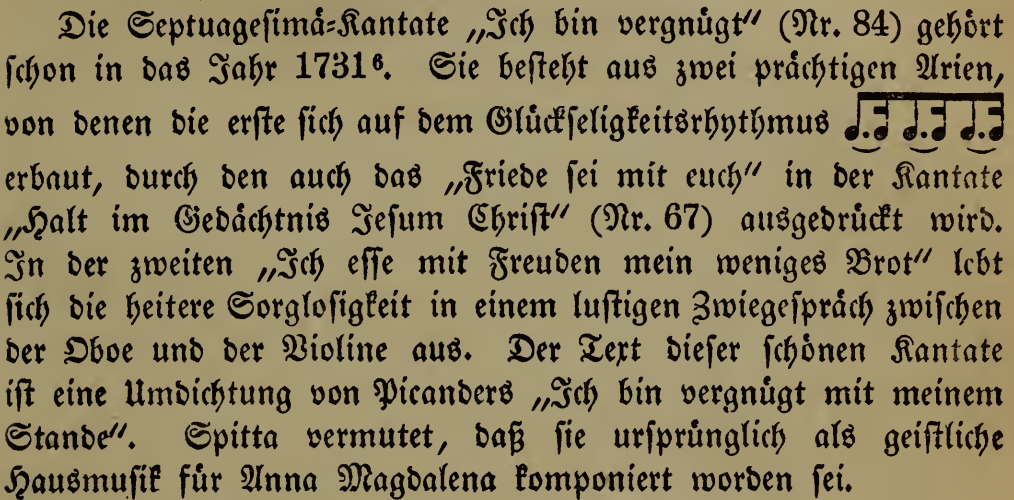 Die Septuagesimä-Kantate „Ich bin vergnügt“ (Nr. 84) gehört
schon in das Jahr 1731⁶. Sie besteht aus zwei prächtigen Arien,
von denen die erste sich auf dem Glückseligkeitsrhythmus
erbaut, durch den auch das „Friede sei mit euch“ in der Kantate
„Halt im Gedächtnis Jesum Christ“ (Nr. 67) ausgedrückt wird.
In der zweiten „Ich esse mit Freuden mein weniges Brot“ lebt
sich die heitere Sorglosigkeit in einem lustigen Zwiegespräch zwischen
der Oboe und der Violine aus. Der Text dieser schönen Kantate
ist eine Umdichtung von Picanders „Ich bin vergnügt mit meinem
Stande“. Spitta vermutet, daß sie ursprünglich als geistliche
Hausmusik für Anna Magdalena komponiert worden sei.